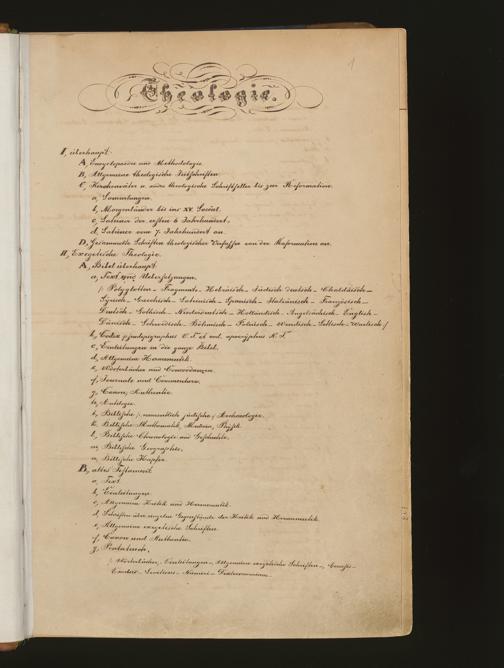 1
Theologie.
I, überhaupt.
A, Encyclopaedie und Methodologie
B, Allgemeine theologische Zeitschriften.
C, Kirchenväter u. andre theologische Schriftsteller bis zur Reformation.
a, Sammlungen.
b, Morgenländer bis ins XV. Saecul.
c, Lateiner der ersten 6 Jahrhundert.
d, Lateiner vom 7. Jahrhundert an.
D, Gesammelte Schriften theologischer Verfasser von der Reformation an.
II, Exegetische Theologie.
A, Bibel überhaupt.
a, Text und Uebersetzungen.
Polyglotten - Fragmente - Hebräisch - Jüdisch deutsch - Chaldäisch -
Syrisch - Griechisch - Lateinisch - Spanisch - Italiänisch - Französisch -
Deutsch - Gothisch - Niederdeutsch - Holländisch - Angelsächsisch - Englisch -
Dänisch - Schwedisch - Böhmisch - Polnisch - Wendisch - Celtisch -
b, Codex pseudepigraphus V. T. et apocryphus N. T.
c, Einleitungen in die ganze Bibel.
d, Allgemeine Hermeneutik.
e, Wörterbücher und Concordanzen.
f, Journale und Commentare.
g, Canon, Authentie.
h,
i, Biblische, namentlich jüdische, Archaeologie.
k, Biblische Mathematik, Medicin, Physik.
l, Biblische Chronologie und Geschichte.
m, Biblische Geographie.
n, Biblische Kupfer.
B, altes Testament
a, Text.
b, Einleitungen
c, Allgemeine Kritik und Hermeneutik.
d, Schriften über einzelne Gegenstände der Kritik und Hermeneutik
e, Allgemeine exegetische Schriften.
f, Canon und Authentie.
g, Pentateuch.
Wörterbücher, Einleitungen - Allgemeine exegetische Schriften - Genesis -
Exodus - Leviticus - Numeri - Deuteronomium